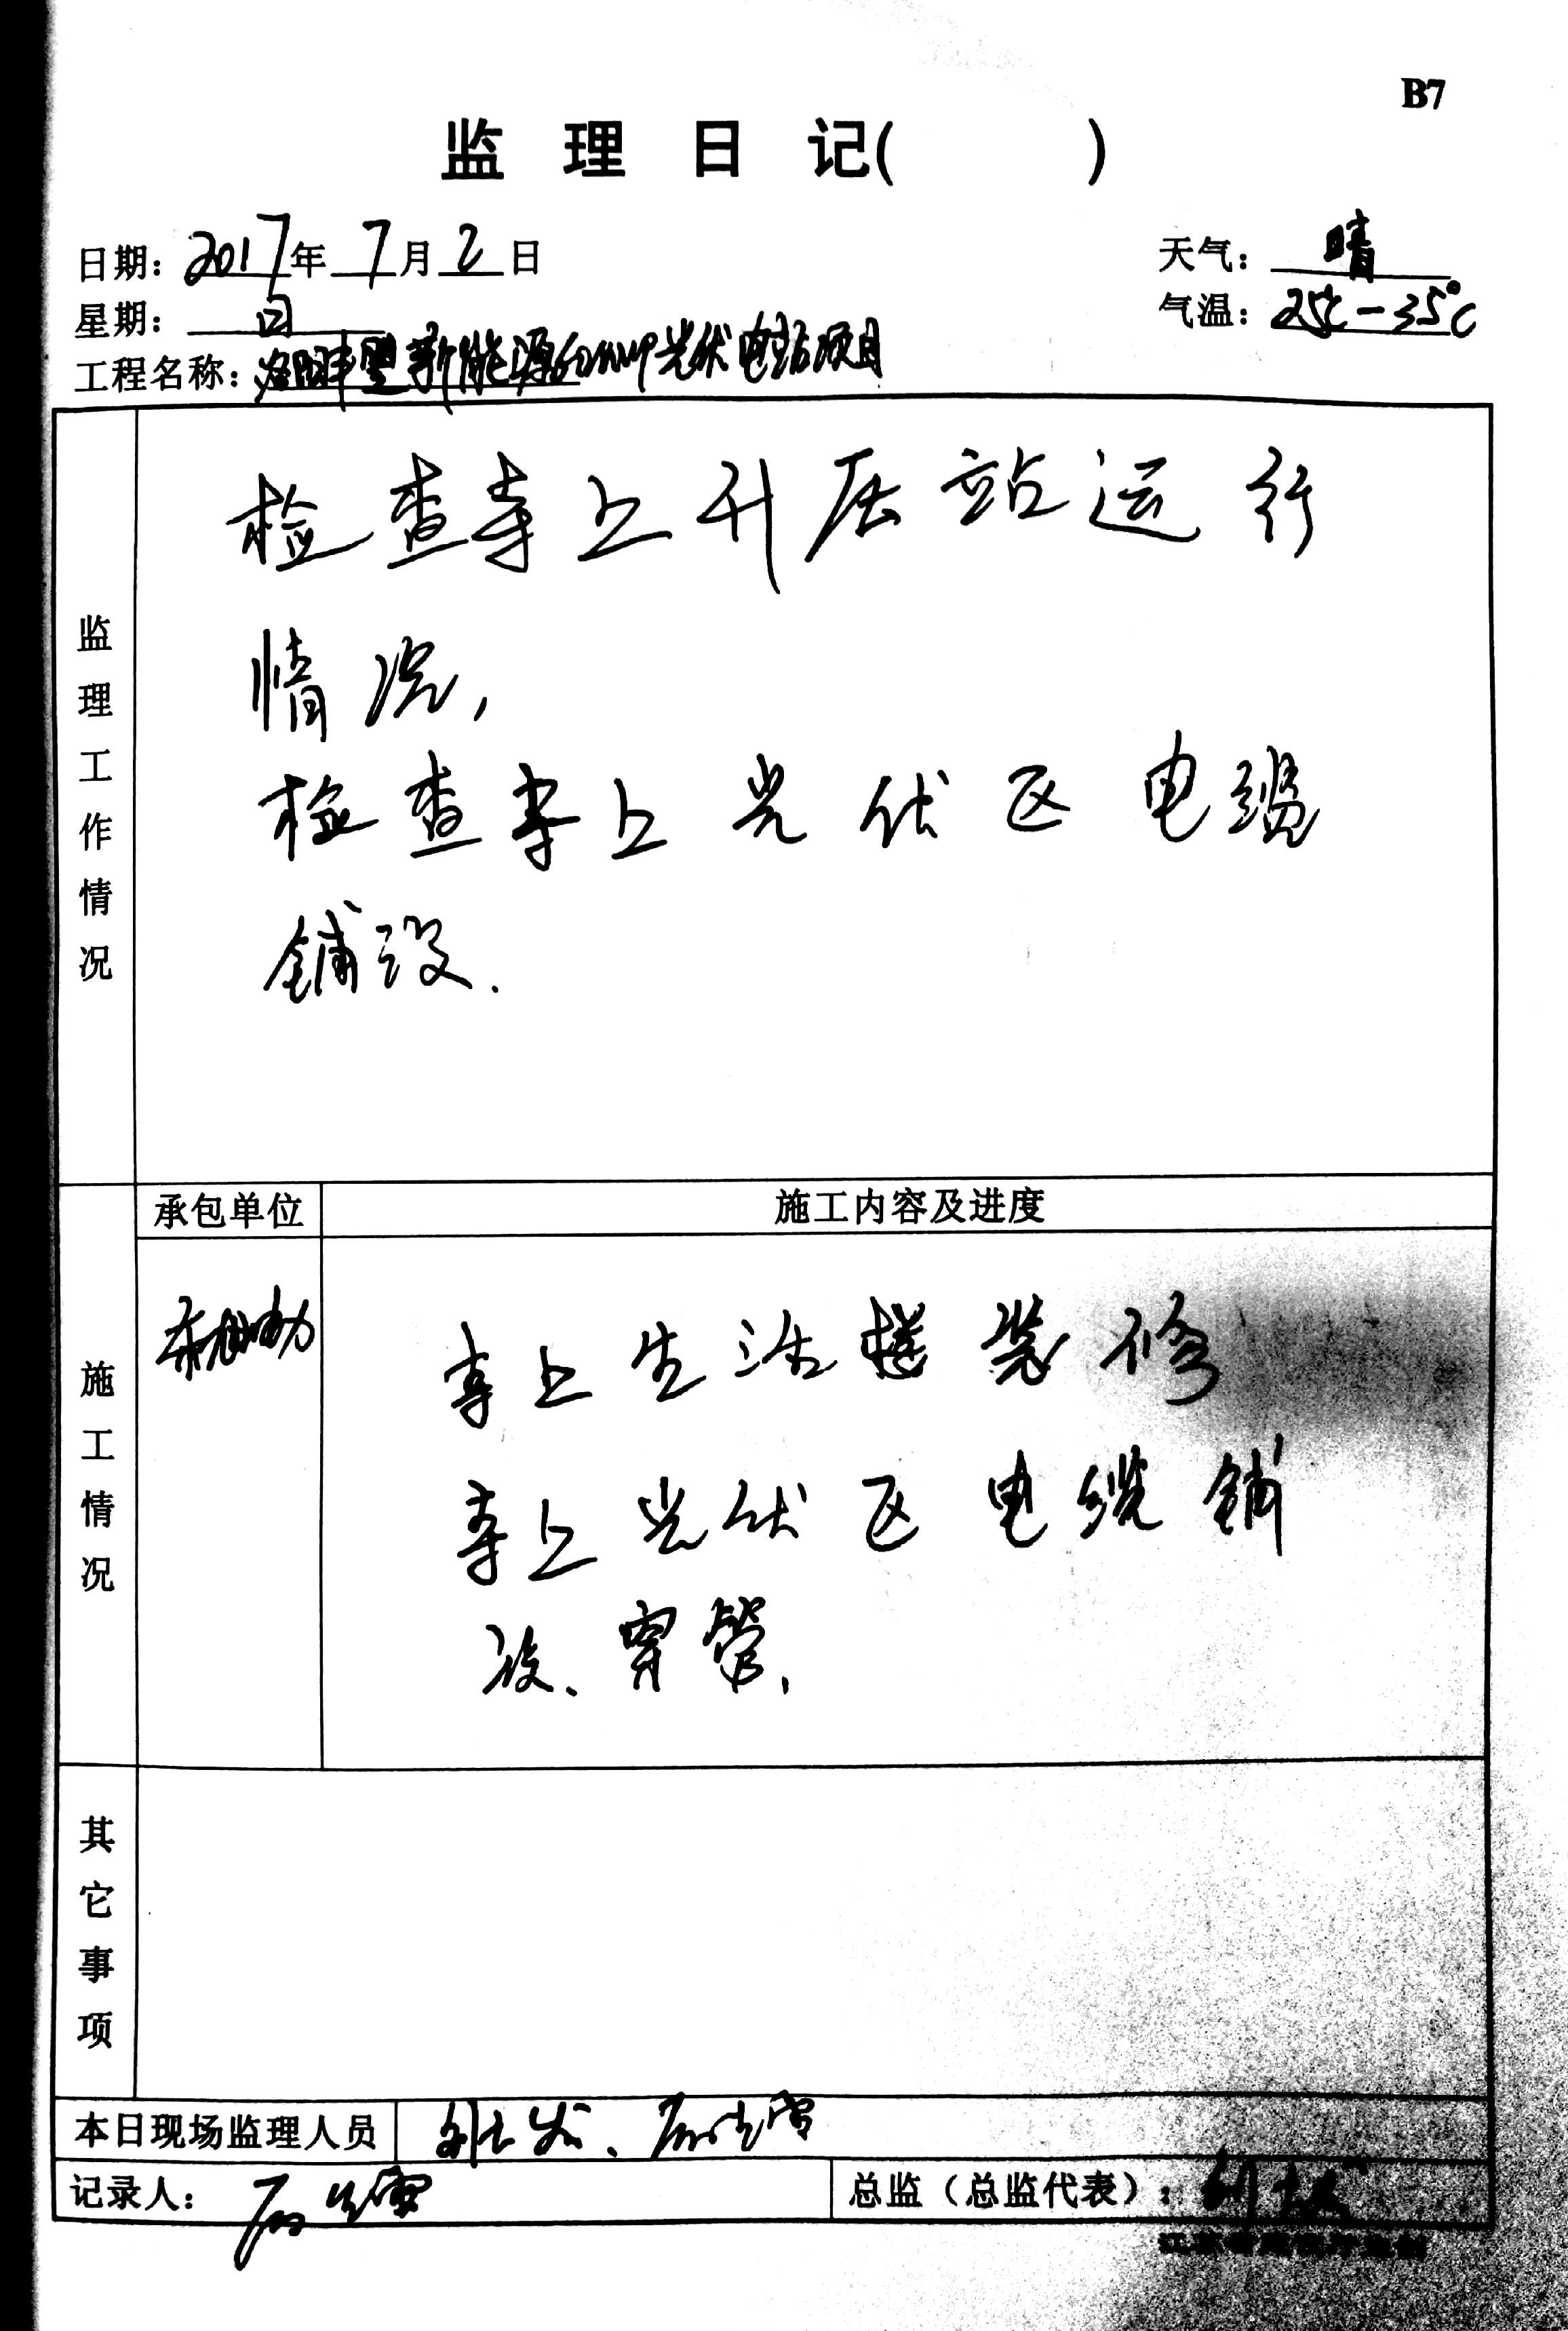 B7
监理日记( )
日期：2017年7月2日 天气：晴
星期：日 气温：25℃-35℃
工程名称：新能源光伏电站项目
监理工作情况
检查寺上升压站运行
情况,
检查寺上光伏区电缆
铺设.
承包单位 施工内容及进度
施工情况
寺上生活楼装修
寺上光伏区电缆铺
设、穿管、
其它事项
本日现场监理人员
记录人： 总监（总监代表）：